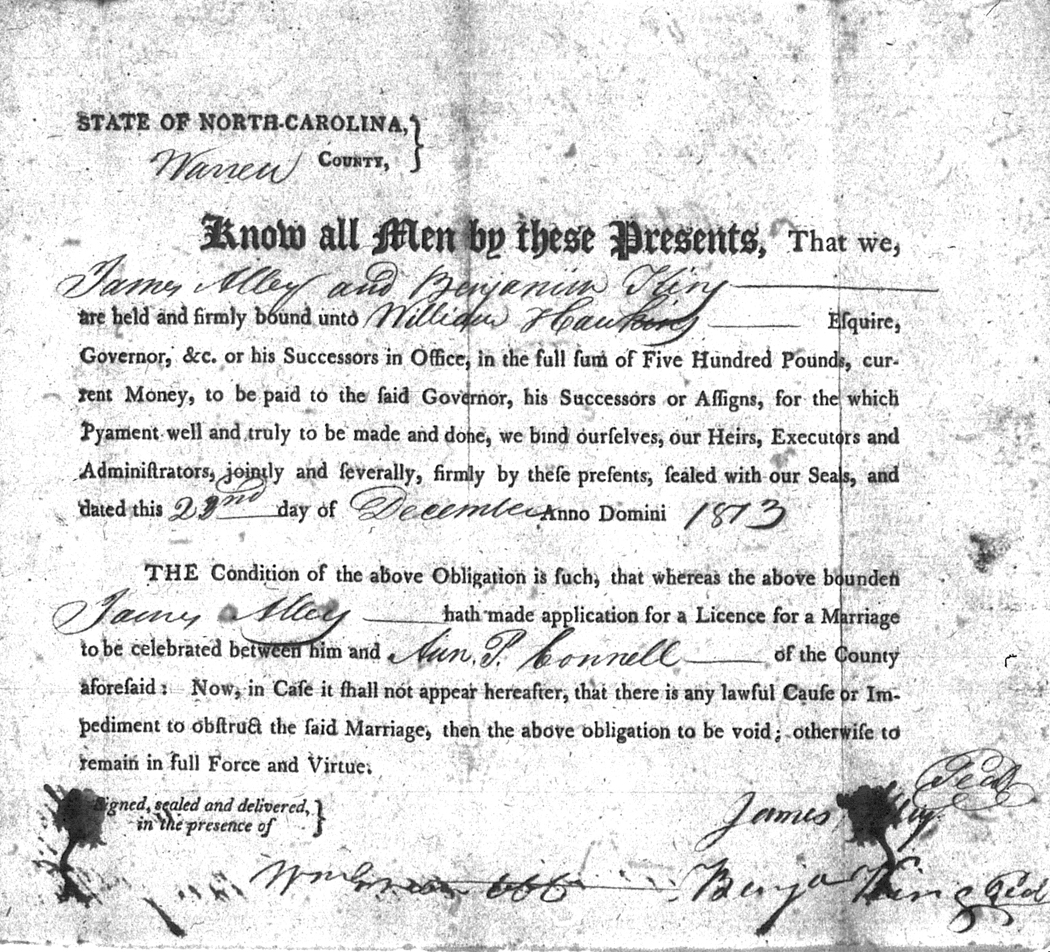 STATE OF NORTH-CAROLINA,
Warren COUNTY,
Know all Men by these Presents, That we,
James Alley and Benjamin King
are held and firmly bound unto William Hawkins Eſquire,
Governor, &c. or his Successors in Office, in the full ſum of Five Hundred Pounds, cur-
rent Money, to be paid to the ſaid Governor, his Successors or Aſſigns, for the which
Pyament well and truly to be made and done, we bind ourſelves, our Heirs, Executors and
Adminiſtrators, jointly and ſeverally, firmly by theſe preſents, ſealed with our Seals, and
dated this day of December Anno Domini 1813
THE Condition of the above Obligation is ſuch, that whereas the above bounden
James Alley hath made application for a Licence for a Marriage
to be celebrated between him and Ann. P. Connell of the County
aforeſaid: Now, in Caſe it ſhall not appear hereafter, that there is any lawful Cauſe or Im-
pediment to obſtruct the ſaid Marriage, then the above obligation to be void; otherwiſe to
remain in full Force and Virtue.
Signed, sealed and delivered,
in the presence of
James Alley
Benja King